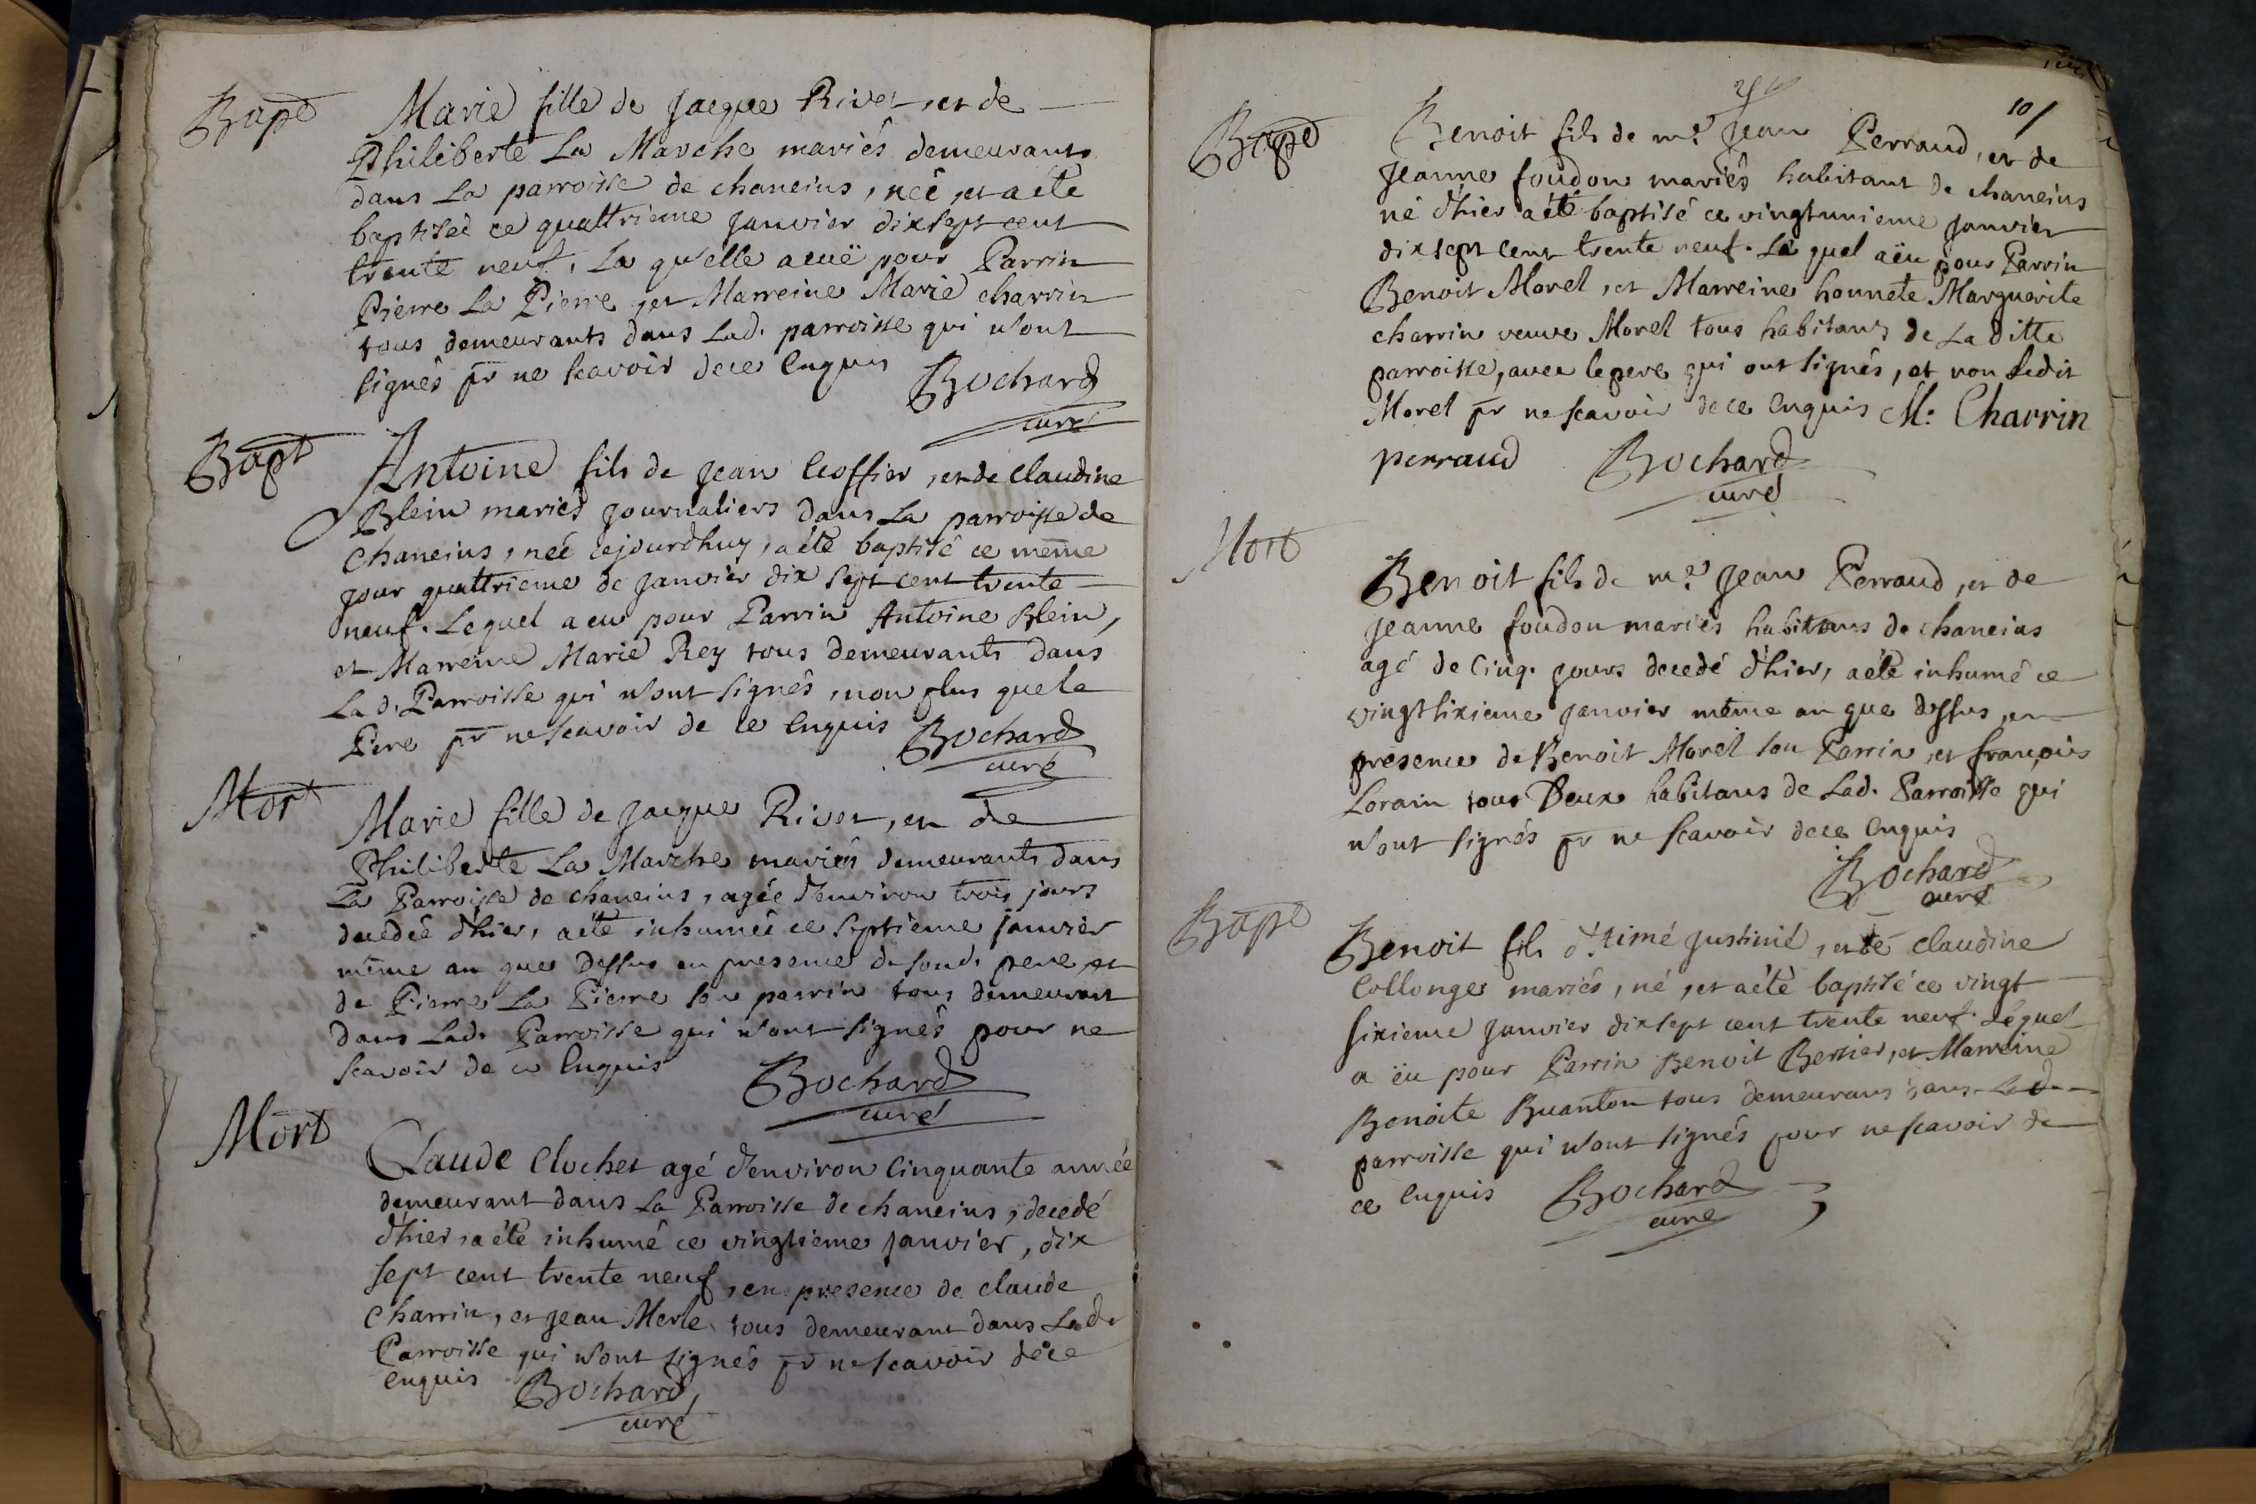 Bapt
Marie fille de Jacque Rivet, et de
Philiberte La Marche mariés demeurants
dans La parroisse de chaneins, née, et a été
baptisée ce quattrieme Janvier dixsept cent
trente neuf, La qu'elle a euë pour Parrin
Pierre La Pierre, et Marreine Marie charrin
tous demeurants dans Lad. parroisse qui n'ont
signés pr ne scavoir de ce Enquis Bochard
curé
Bapt
Antoine fils de Jean Coffier, et de Claudine
Blein mariés journaliers dans La parroisse de
Chaneins, neé cejourdhuy, a été baptisé ce même
jour quattrieme de Janvier dix sept cent trente
neuf. Lequel a eu pour Parrin Antoine Blein,
et Marreine Marie Rey tous demeurants dans
La d. Parroisse qui n'ont signés, non plus que le
Pere pr ne scavoir de ce Enquis Bochard
curé
Mort
Marie fille de Jacque Rivet, et de
Philiberte La Marche mariés demeurants dans
La Parroisse de chaneins, agée d'environ trois jours
decedée d'hier, a été inhumée ce septieme janvier
même an que Dessus en presence de sond. pere, et
de Pierre La Pierre son parrin tous demeurant
dans Lad. Parroisse qui n'ont signés pour ne
scavoir de ce Enquis Bochard
curé
Mort
Claude Clochet agé d'environ Cinquante année
demeurant dans La Parroisse de chaneins, decedé
d'hier, a été inhumé ce vingtieme Janvier, dix
sept cent trente neuf, en presence de claude
Charrin, et Jean Merle tous demeurant dans Lad.
Parroisse qui n'ont signés pr ne scavoir de ce
enquis Bochard,
curé
10
Bapt
Benoit fils de mre Jean Perraud, et de
Jeanne foudon mariés habitant de chaneins
né d'hier a été baptisé ce vingtunieme Janvier
dixsept cent trente neuf. Le quel a ëu pour Parrin
Benoit Morel, et Marreine honnete Marguerite
charrin veuve Morel tous habitans de La ditte
parroisse, avec le pere qui ont signés, et non Ledit
Morel pr ne scavoir de ce Enquis M: Charrin
perraud Bochard
curé
Mort
Benoit fils de mre Jean Perraud, et de
Jeanne foudon mariés habitans de chaneins
agé de Cinq. jours decedé d'hier, a été inhumé ce
vingtsixieme Janvier même an que dessus, en
presence de Benoit Morel son Parrin, et françois
Lorain tous Deux habitans de Lad. Parroisse qui
n'ont signés pr ne scavoir de ce Enquis
Bochard
curé
Bapt
Benoit fils d'Aimé Justinié, et de claudine
Collonge mariés, né, et a été baptisé ce vingt
sixieme Janvier dixsept cent trente neuf. Lequel
a ëu pour Parrin Benoit Bernier, et Marreine
Benoite Buanton tous demeurans dans Lad.
parroisse qui n'ont signés pour ne scavoir de
ce Enquis Bochard
curé